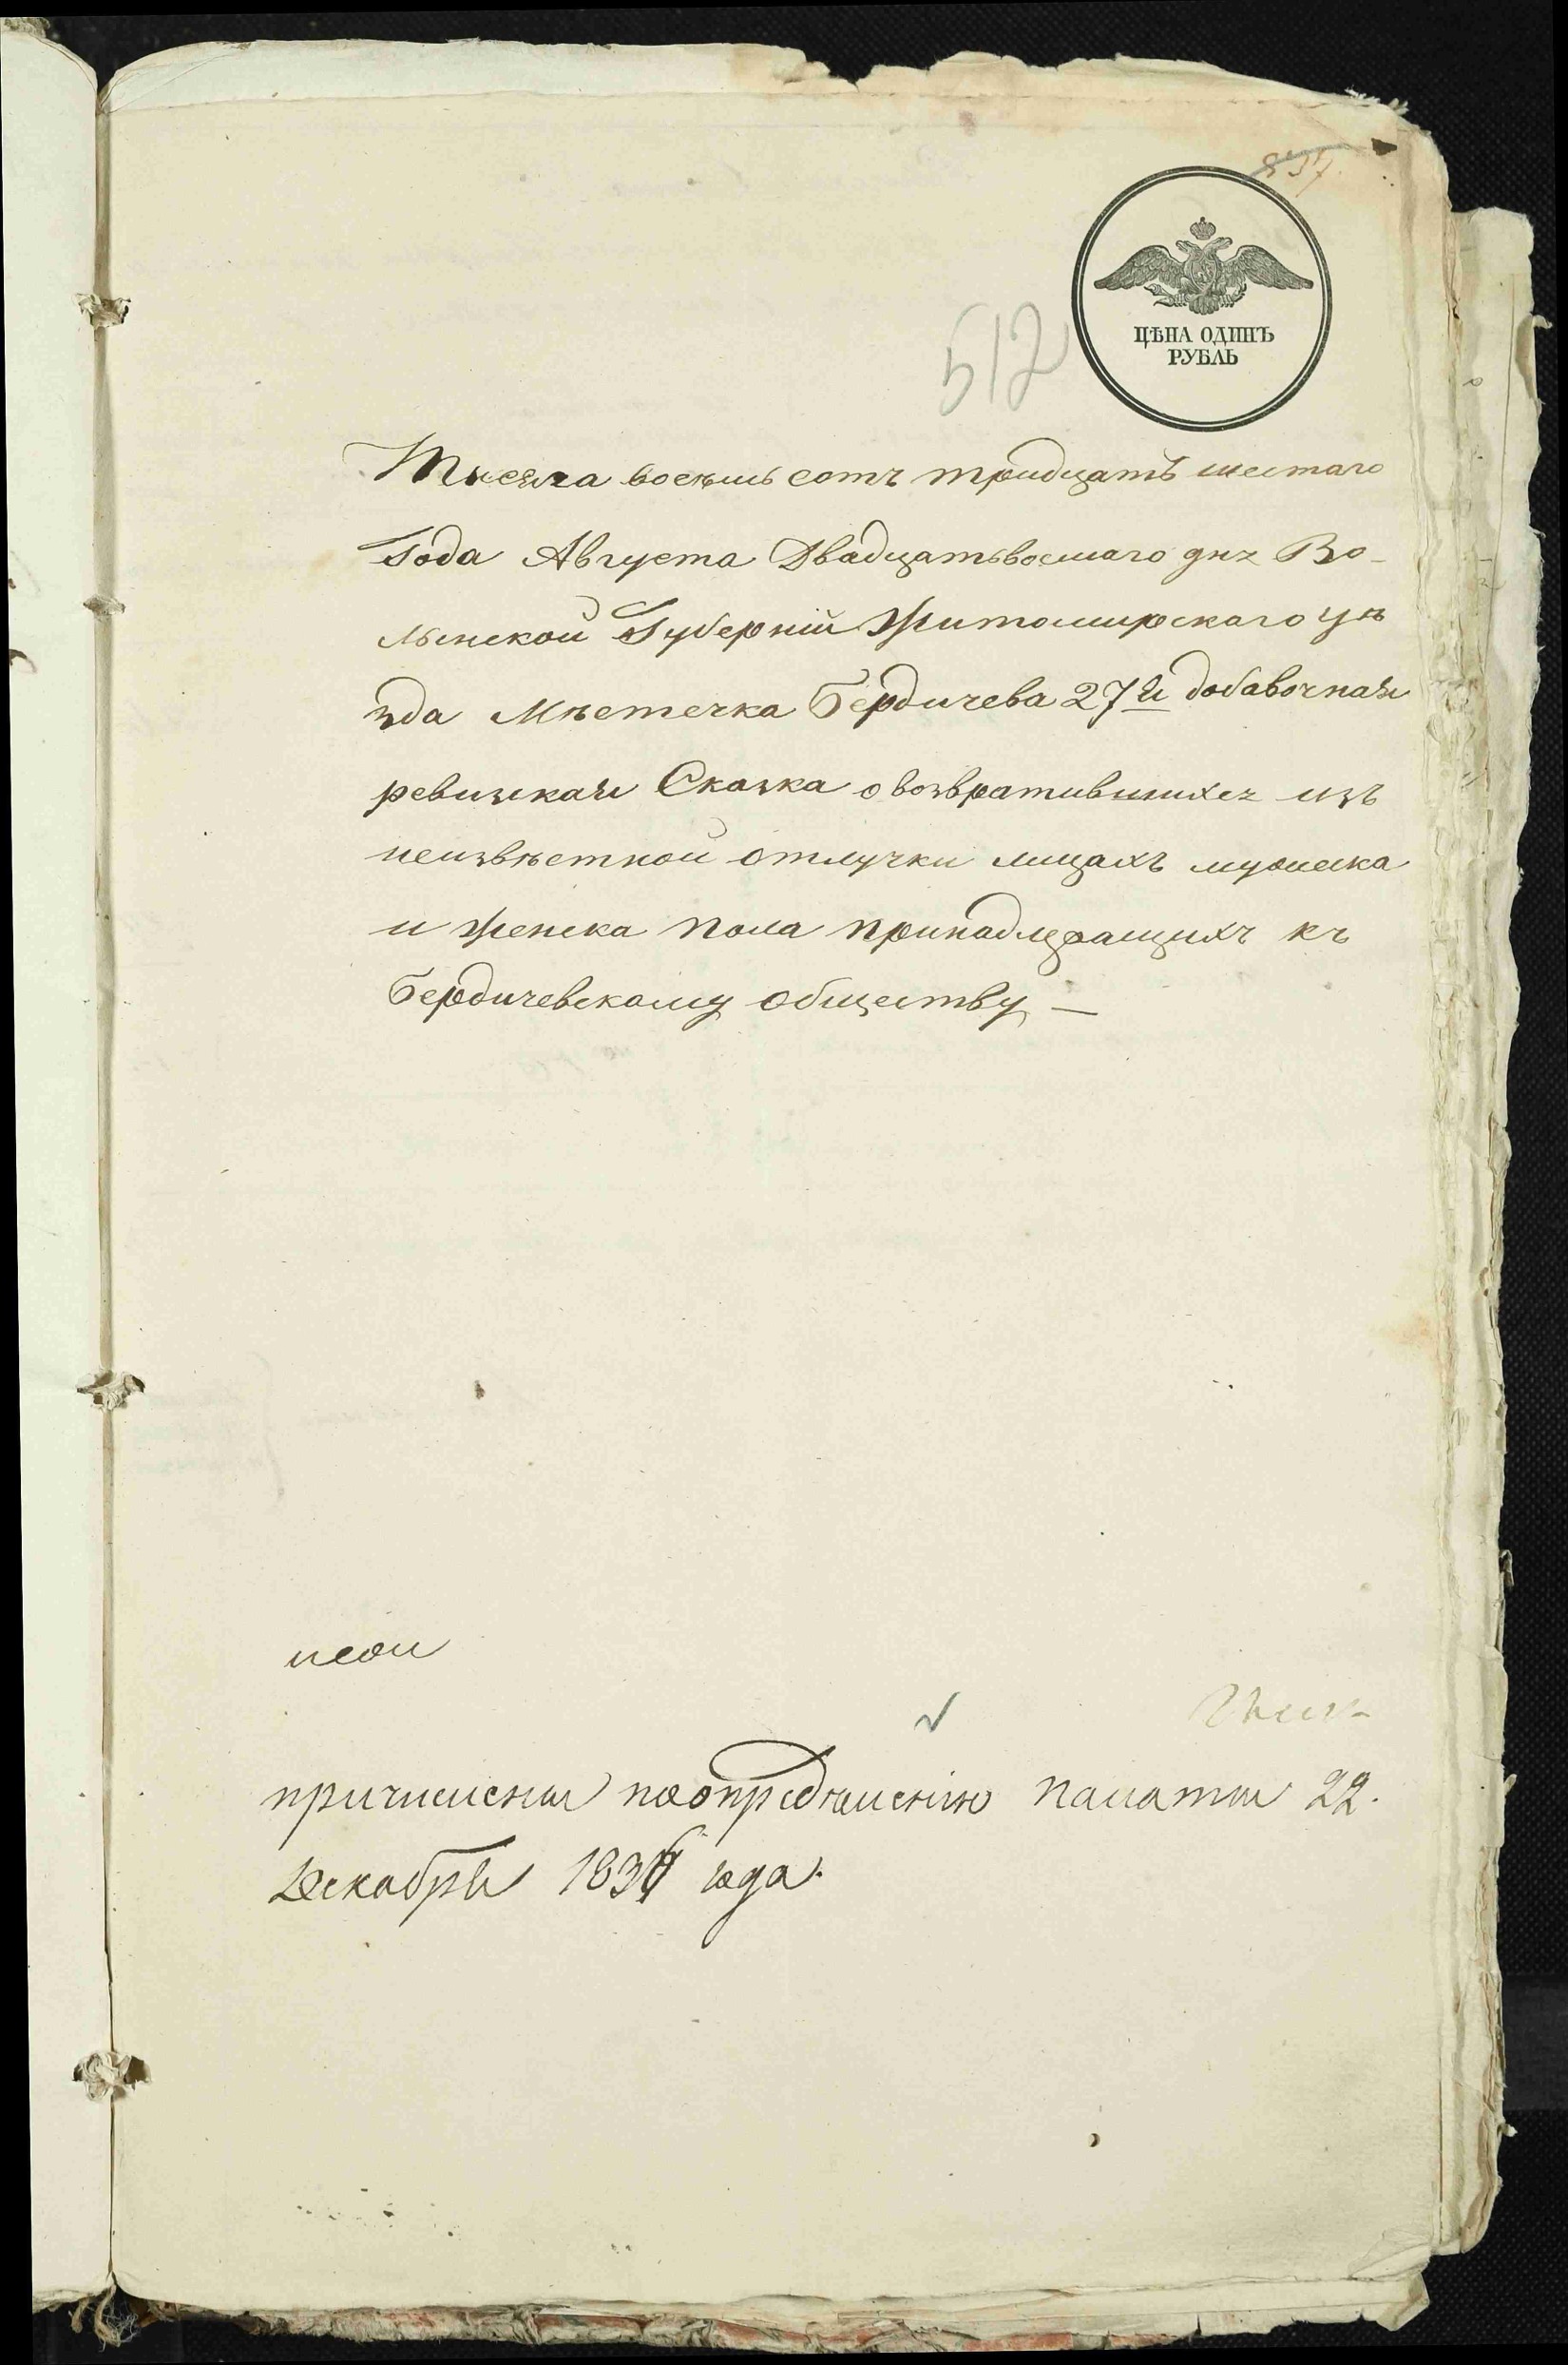 837.
ЦѢНА ОДИНЪ
РУБЛЬ
512
Тысяча восемь сотъ тридцать шестаго
Года Августа Двадцатьвосмаго дня Во-
лынской Губерніи Житомирскаго уѣ
зда Мѣстечка Бердичева 27я добавочная
ревизская Сказка о возвратившихся изъ
неизвѣстной отлучки лицахъ мужеска
и женска пола принадлежащихъ къ
Бердичевскому обществу —
причислены по опредѣленію палаты 22.
Декабря 1836 года.